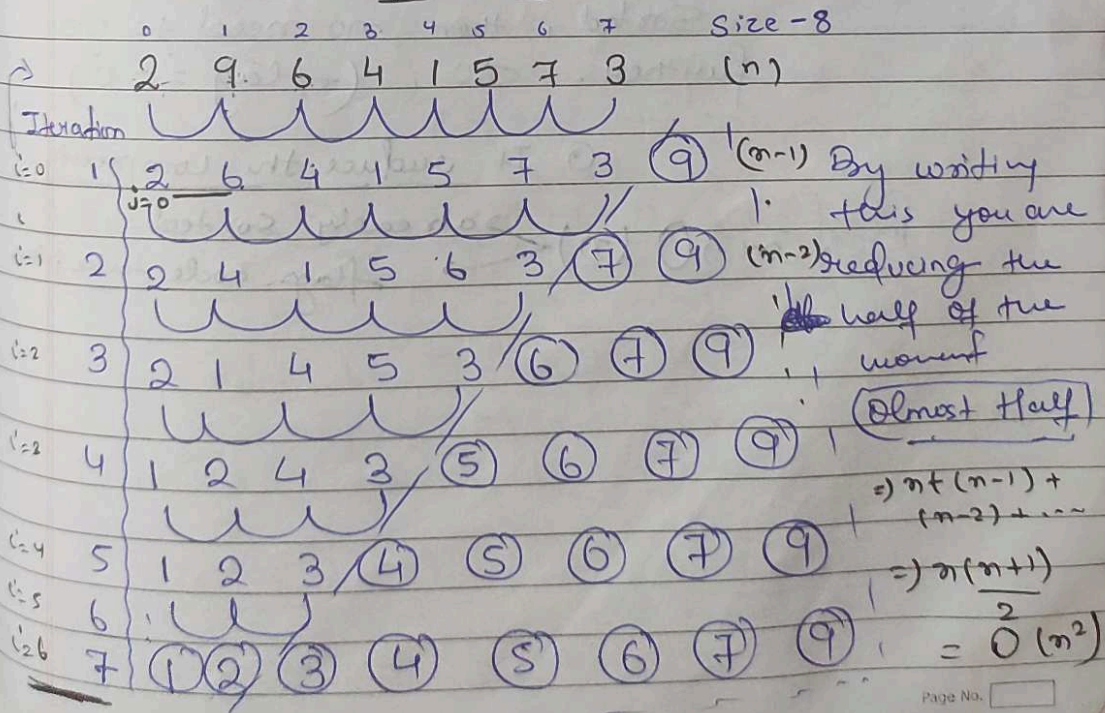 0 1 2 3 4 5 6 7 Size - 8
2 9 6 4 1 5 7 3 (n)
Iteration
i=0 1 2 6 4 1 5 7 3 9 (n-1) By writing
j=0
this you are
i=1 2 2 4 1 5 6 3 7 9 (n-2) reducing the
half of the
i=2 3 2 1 4 5 3 6 7 9 moment
(Olmost Half)
i=3 4 1 2 4 3 5 6 7 9
=) n+(n-1)+
(n-2)+...
i=4 5 1 2 3 4 5 6 7 9
=) n(n+1)
i=5 6 2
i=6 7 1 2 3 4 5 6 7 9 = O(n²)
Page No.